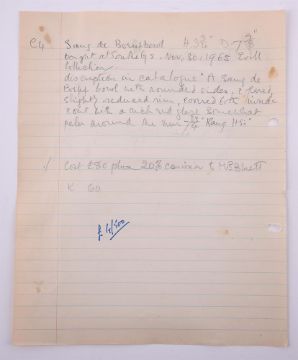 C4 Sang de Boeuf bowl H 3 3/4" D 7 3/8"
bought at Sothebys. Nov. 30. 1965 Evill
Collection
description in catalogue "A Sang de
Boeuf bowl with rounded sides,
slightly reduced rim, covered both inside
out with a rich red glaze somewhat
paler around the rim - Kang Hsi"
✓ Cost £80 plus 20% to
K 60